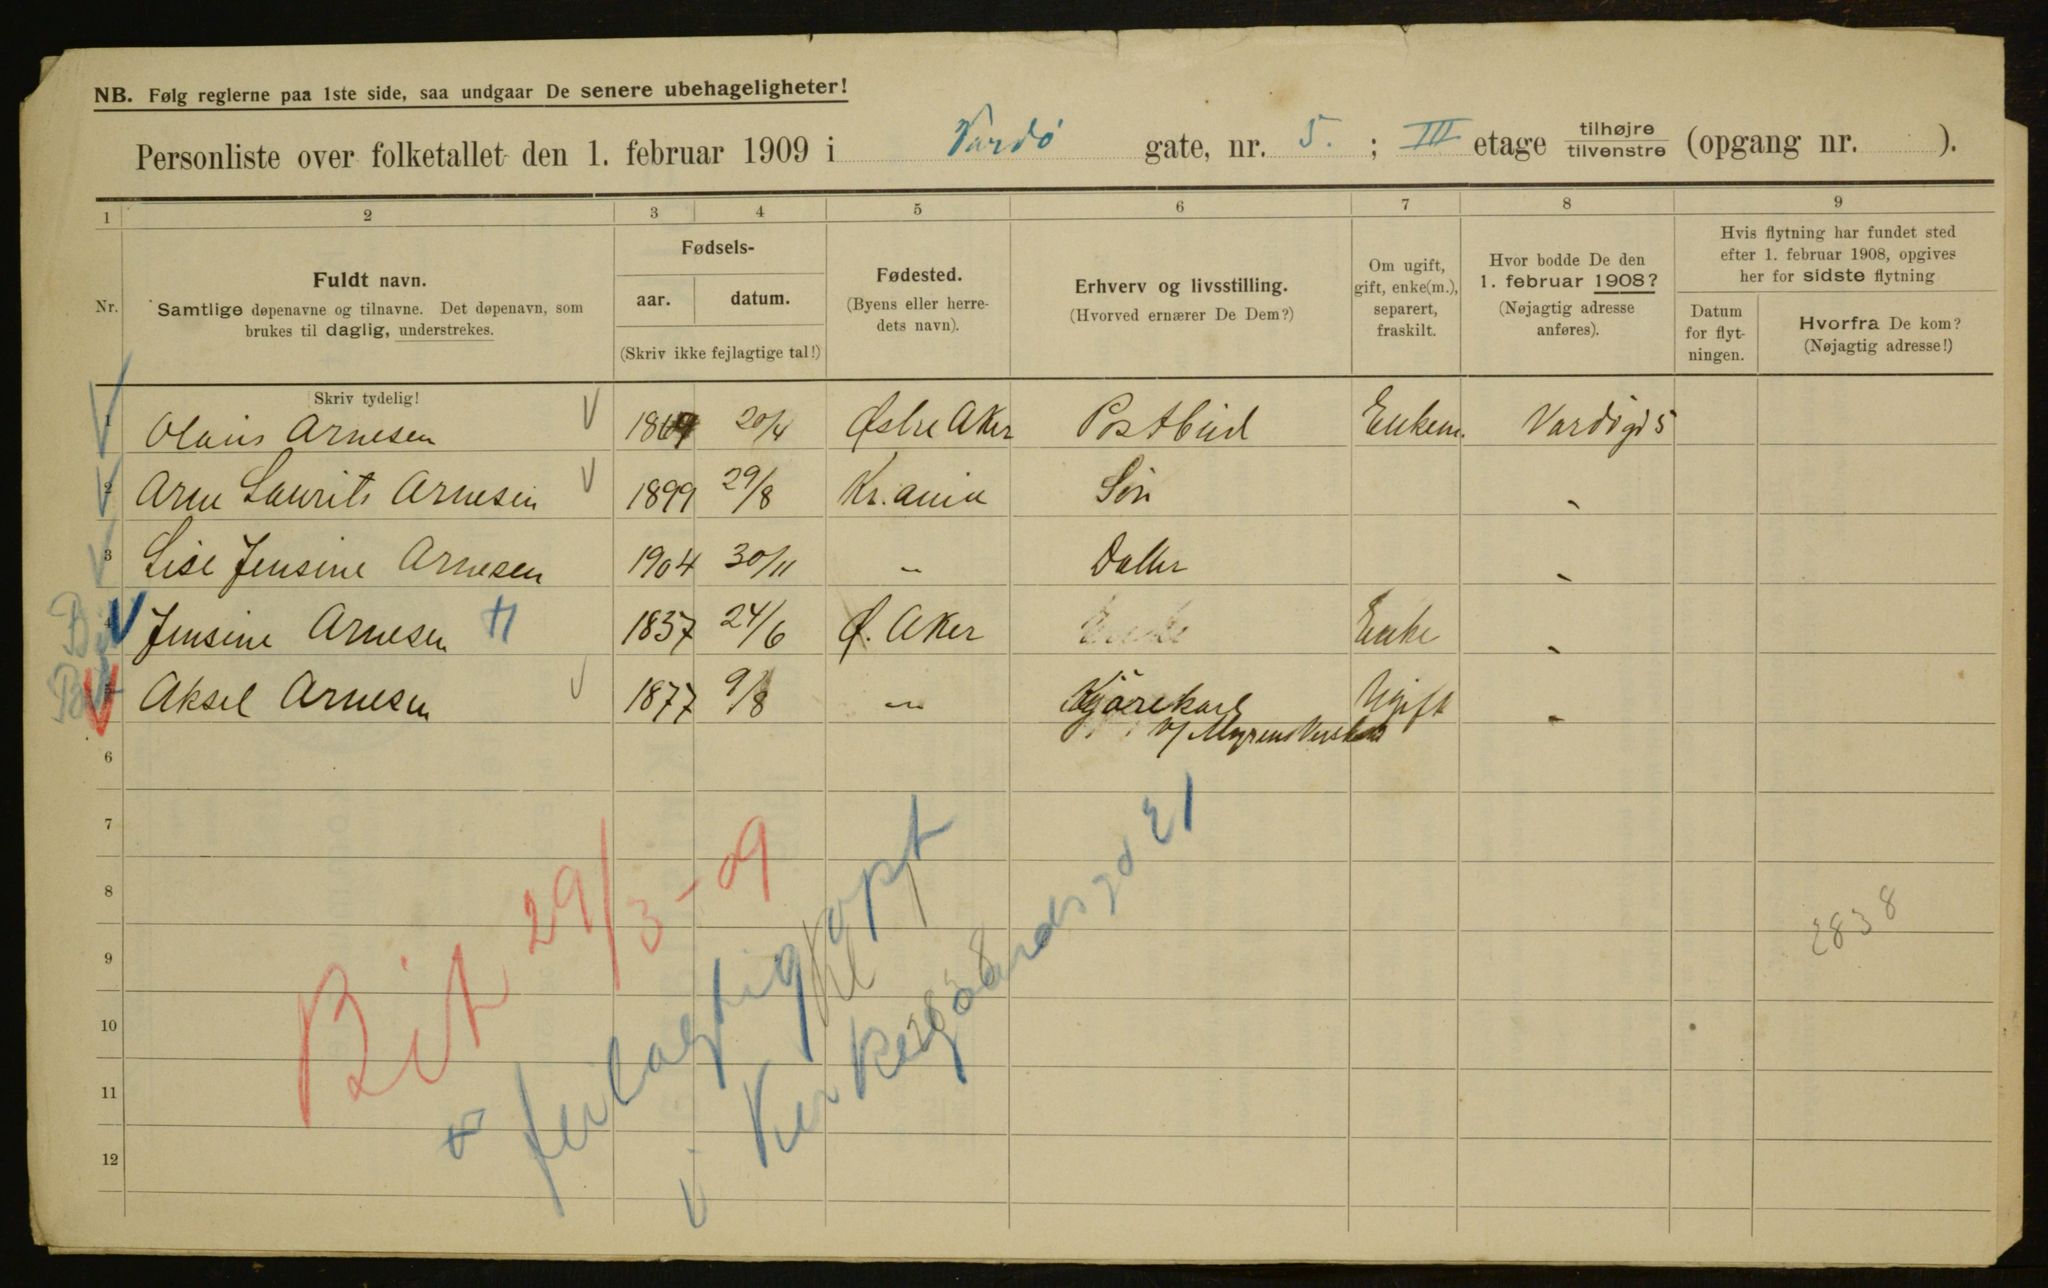 NB. Følg reglerne paa 1ste side, saa undgaar De senere ubehageligheter!
Personliste over folketallet den 1. februar 1909 i Vardö gate, nr. 5. ; III etage tilhøjre tilvenstre (opgang nr. ).
1 2 3 4 5 6 7 8 9
Nr.
Fuldt navn.
Samtlige døpenavne og tilnavne. Det døpenavn, som
brukes til daglig, understrekes.
Fødsels-
aar. datum.
(Skriv ikke fejlagtige tal!)
Fødested.
(Byens eller herre-
dets navn).
Erhverv og livsstilling.
(Hvorved ernærer De Dem?)
Om ugift,
gift, enke(m.),
separert,
fraskilt.
Hvor bodde De den
1. februar 1908?
(Nøjagtig adresse
anføres).
Hvis flytning har fundet sted
efter 1. februar 1908, opgives
her for sidste flytning
Datum
for flyt-
ningen.
Hvorfra De kom?
(Nøjagtig adresse!)
Skriv tydelig!
1 Olaus Arnesen 20/4 Østre Aker Postbud Enkem. Vardögd 5
2 Arne Laurits Arnesen 1899 29/8 Kr.ania Sön "
3 Lise Jensine Arnesen 1904 30/11 " Datter "
4 Jensine Arnesen 1837 24/6 Ø. Aker Enke Enke "
5 Aksel Arnesen 1877 9/8 " Kjörekarl Ugift "
v/ Myrens Verksted
6
7
8
9
10
11
12
Bit 29/3-09
feilagtig opt
i Kirkegaardsgd 21
2838